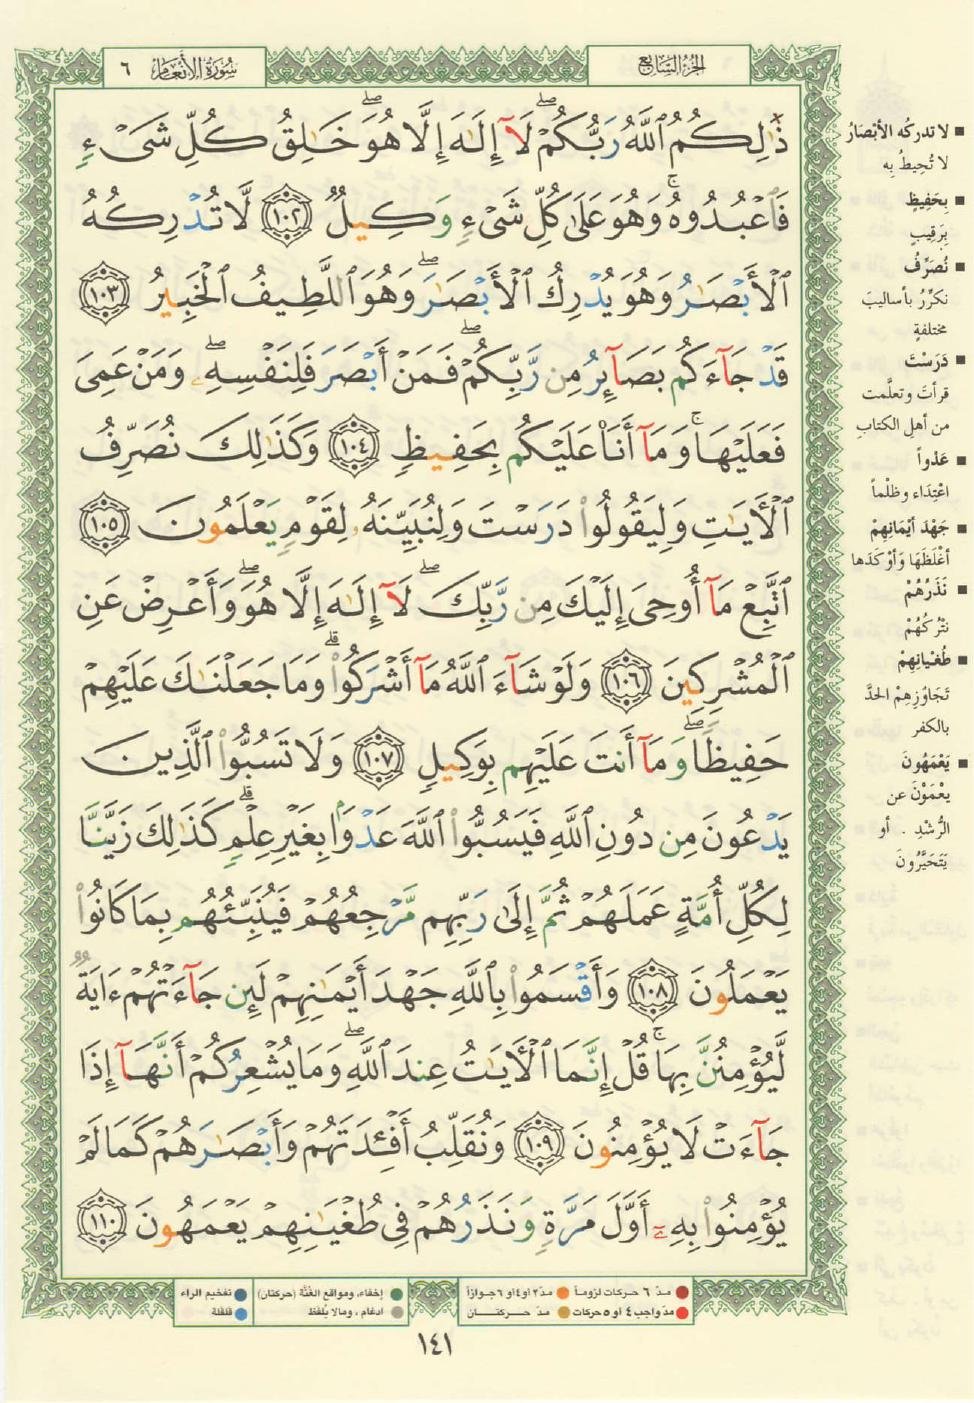 الجزء السابع
سورة الأنعام ٦
ذَٰلِكُمُ ٱللَّهُ رَبُّكُمْۖ لَآ إِلَٰهَ إِلَّا هُوَۖ خَٰلِقُ كُلِّ شَىْءٍ
فَٱعْبُدُوهُۚ وَهُوَ عَلَىٰ كُلِّ شَىْءٍ وَكِيلٌ ١٠٢ لَّا تُدْرِكُهُ
ٱلْأَبْصَٰرُ وَهُوَ يُدْرِكُ ٱلْأَبْصَٰرَۖ وَهُوَ ٱللَّطِيفُ ٱلْخَبِيرُ ١٠٣
قَدْ جَآءَكُم بَصَآئِرُ مِن رَّبِّكُمْۖ فَمَنْ أَبْصَرَ فَلِنَفْسِهِۦۖ وَمَنْ عَمِىَ
فَعَلَيْهَاۚ وَمَآ أَنَا۠ عَلَيْكُم بِحَفِيظٍ ١٠٤ وَكَذَٰلِكَ نُصَرِّفُ
ٱلْأَيَٰتِ وَلِيَقُولُوا۟ دَرَسْتَ وَلِنُبَيِّنَهُۥ لِقَوْمٍ يَعْلَمُونَ ١٠٥
ٱتَّبِعْ مَآ أُوحِىَ إِلَيْكَ مِن رَّبِّكَۖ لَآ إِلَٰهَ إِلَّا هُوَۖ وَأَعْرِضْ عَنِ
ٱلْمُشْرِكِينَ ١٠٦ وَلَوْ شَآءَ ٱللَّهُ مَآ أَشْرَكُوا۟ۗ وَمَا جَعَلْنَٰكَ عَلَيْهِمْ
حَفِيظًاۖ وَمَآ أَنتَ عَلَيْهِم بِوَكِيلٍ ١٠٧ وَلَا تَسُبُّوا۟ ٱلَّذِينَ
يَدْعُونَ مِن دُونِ ٱللَّهِ فَيَسُبُّوا۟ ٱللَّهَ عَدْوًۢا بِغَيْرِ عِلْمٍۗ كَذَٰلِكَ زَيَّنَّا
لِكُلِّ أُمَّةٍ عَمَلَهُمْ ثُمَّ إِلَىٰ رَبِّهِم مَّرْجِعُهُمْ فَيُنَبِّئُهُم بِمَا كَانُوا۟
يَعْمَلُونَ ١٠٨ وَأَقْسَمُوا۟ بِٱللَّهِ جَهْدَ أَيْمَٰنِهِمْ لَئِن جَآءَتْهُمْ ءَايَةٌ
لَّيُؤْمِنُنَّ بِهَاۚ قُلْ إِنَّمَا ٱلْأَيَٰتُ عِندَ ٱللَّهِۖ وَمَا يُشْعِرُكُمْ أَنَّهَآ إِذَا
جَآءَتْ لَا يُؤْمِنُونَ ١٠٩ وَنُقَلِّبُ أَفْـِٔدَتَهُمْ وَأَبْصَٰرَهُمْ كَمَا لَمْ
يُؤْمِنُوا۟ بِهِۦٓ أَوَّلَ مَرَّةٍ وَنَذَرُهُمْ فِى طُغْيَٰنِهِمْ يَعْمَهُونَ ١١٠
لا تدركه الأبْصَارُ
لا تُحِيطُ بِه
بِحَفِيظٍ
بِرَقِيبٍ
نُصَرِّفُ
نكرِّرُ بأساليبَ
مختلفةٍ
دَرَسْتَ
قرأتَ وتعلَّمت
من أهل الكتاب
عَدْواً
اعْتِدَاء وظلْماً
جَهْدَ أيْمَانِهِمْ
أغْلَظَهَا وَأوْكَدَها
نَذَرُهُمْ
نَتْرُكُهُمْ
طُغْيَانِهِمْ
تَجَاوُزِهِمْ الحدَّ
بالكفر
يَعْمَهُونَ
يعْمَوْنَ عن
الرُّشْدِ . أو
يَتَحَيَّرُونَ
مدّ ٦ حركات لزوماً مدّ ٢ او ٤ او ٦ جوازاً
مدّ واجب ٤ او ٥ حركات مدّ حركتان
إخفاء، ومواقع الغُنَّة (حركتان) تفخيم الراء
ادغام ، ومالا يُلفَظ قلقلة
١٤١